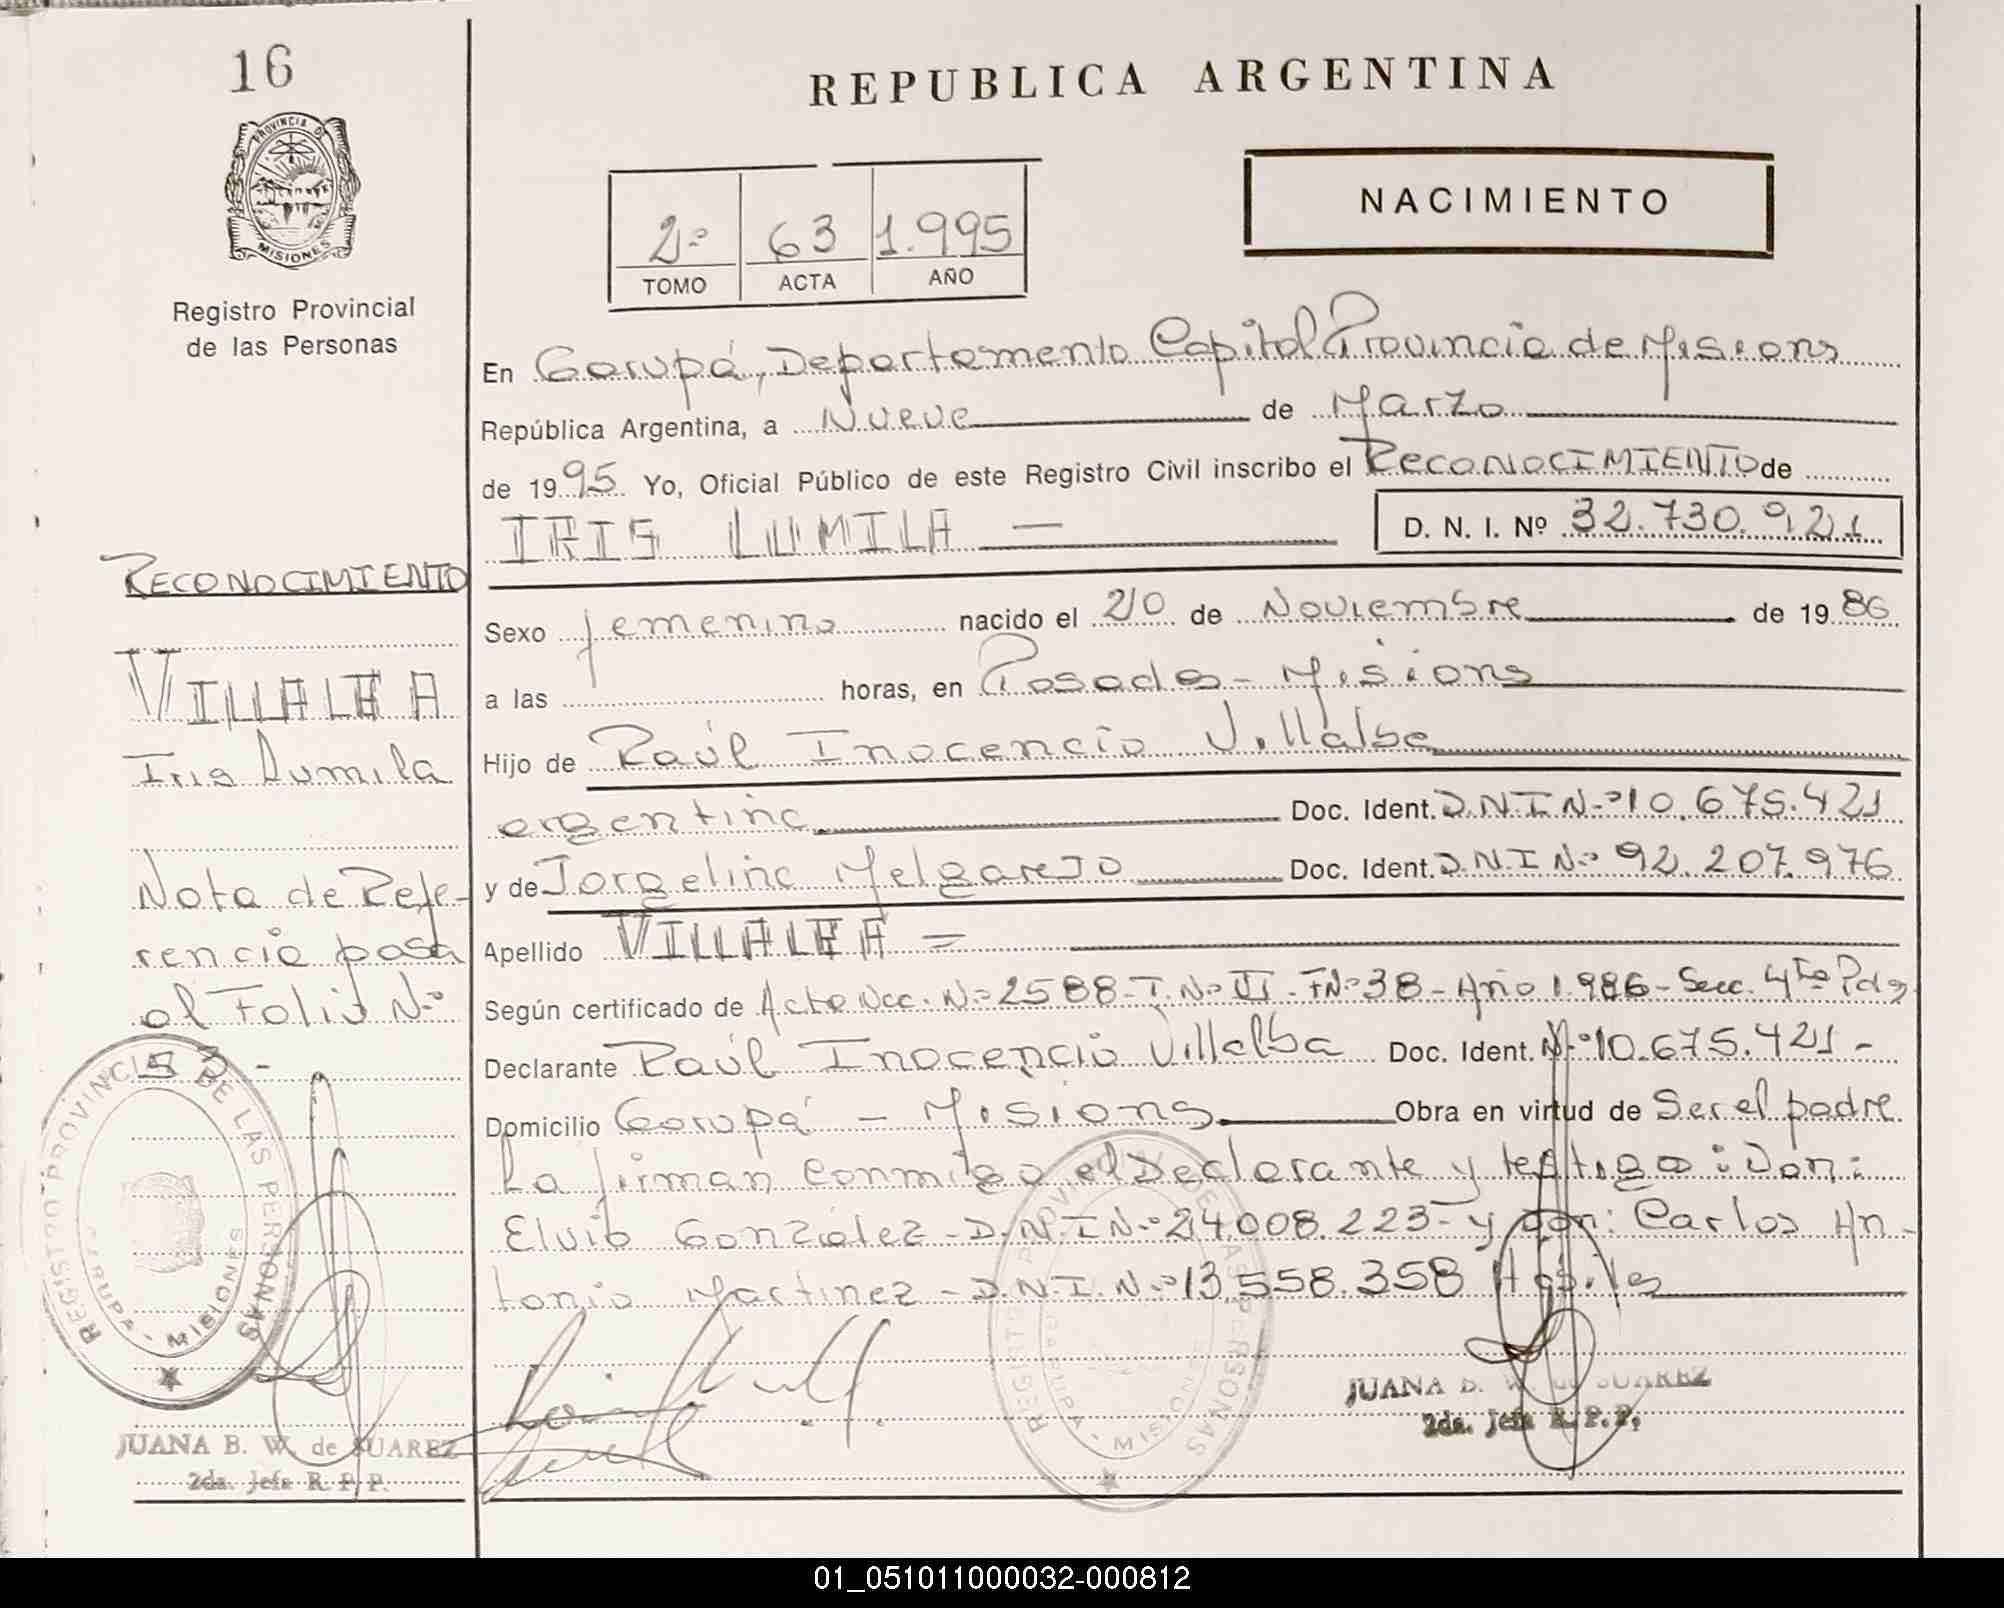 16
PROVINCIA DE
MISIONES
Registro Provincial
de las Personas
RECONOCIMIENTO
VILLALBA
Iris Lumila
Nota de Refe-
rencia pasa
al Folio Nº
53 -
REGISTRO PROVINCIAL DE LAS PERSONAS
GARUPA - MISIONES
JUANA B. W. de SUAREZ
2da. Jefa R. P. P.
REPUBLICA ARGENTINA
NACIMIENTO
2º 63 1.995
TOMO ACTA AÑO
En Garupá, Departamento Capital Provincia de Misions
República Argentina, a Nueve de Marzo
de 1995 Yo, Oficial Público de este Registro Civil inscribo el RECONOCIMIENTO de
IRIS LUMILA —
D. N. I. Nº 32.730.921
Sexo femenino nacido el 20 de Noviembre de 1986
a las horas, en Posadas - Misions
Hijo de Raúl Inocencio Villalba
argentina Doc. Ident. D.N.I Nº 10.675.421
y de Jorgelina Melgarejo Doc. Ident. D.N.I Nº 92.207.976
Apellido VILLALBA =
Según certificado de Acta Nac. Nº 2588 - T.Nº VI - FNº 38 - Año 1.986 - Secc. 4ta Pdas
Declarante Raúl Inocencio Villalba Doc. Ident. Nº 10.675.421 -
Domicilio Garupá - Misions Obra en virtud de Ser el padre
La firman conmigo el Declarante y testigo: Don:
Elvio González - D.N.I Nº 24.008.223 - y don: Carlos An-
tonio Martinez - D.N.I. Nº 13.558.358 Habiles
REGISTRO PROVINCIAL DE LAS PERSONAS
GARUPA - MISIONES
JUANA B. W. de SUAREZ
2da. Jefa R. P. P.
01_051011000032-000812